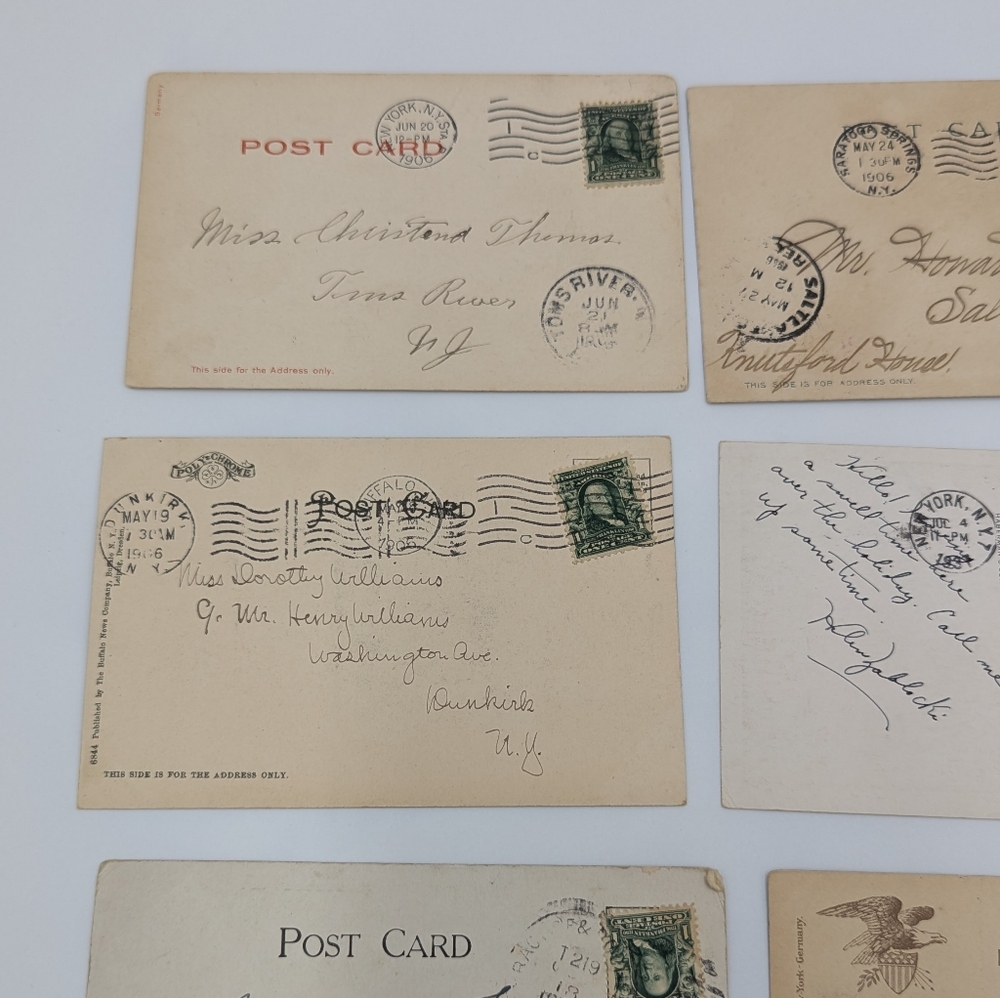 Germany
POST CARD
NEW YORK, N.Y. STA.
JUN 20
12-PM
1906
1
C
Miss Christend Thomas.
Toms River
NJ
TOMS RIVER
JUN
21
8 AM
This side for the Address only.
SARATOGA SPRINGS
MAY 24
1 30PM
1906
N.Y.
SALT LAKE
MAY 27
12 M
Mr. Howa
Sal
Knutsford House.
THIS SIDE IS FOR ADDRESS ONLY.
POLYCHROME
POST CARD
DUNKIRK
MAY 19
7 30AM
1906
N.Y.
BUFFALO
1906
1
C
Miss Dorothy Williams
C/o Mr. Henry Williams
Washington Ave.
Dunkirk
N.Y.
6844 Published by The Buffalo News Company, Buffalo N.Y.,
Leipzig, Dresden
THIS SIDE IS FOR THE ADDRESS ONLY.
Hello!
a swell time here
over the holiday. Call me
up sometime.
Helen Zablocki
NEW YORK, N.Y.
JUL 4
11-PM
POST CARD
T219
York-Germany.